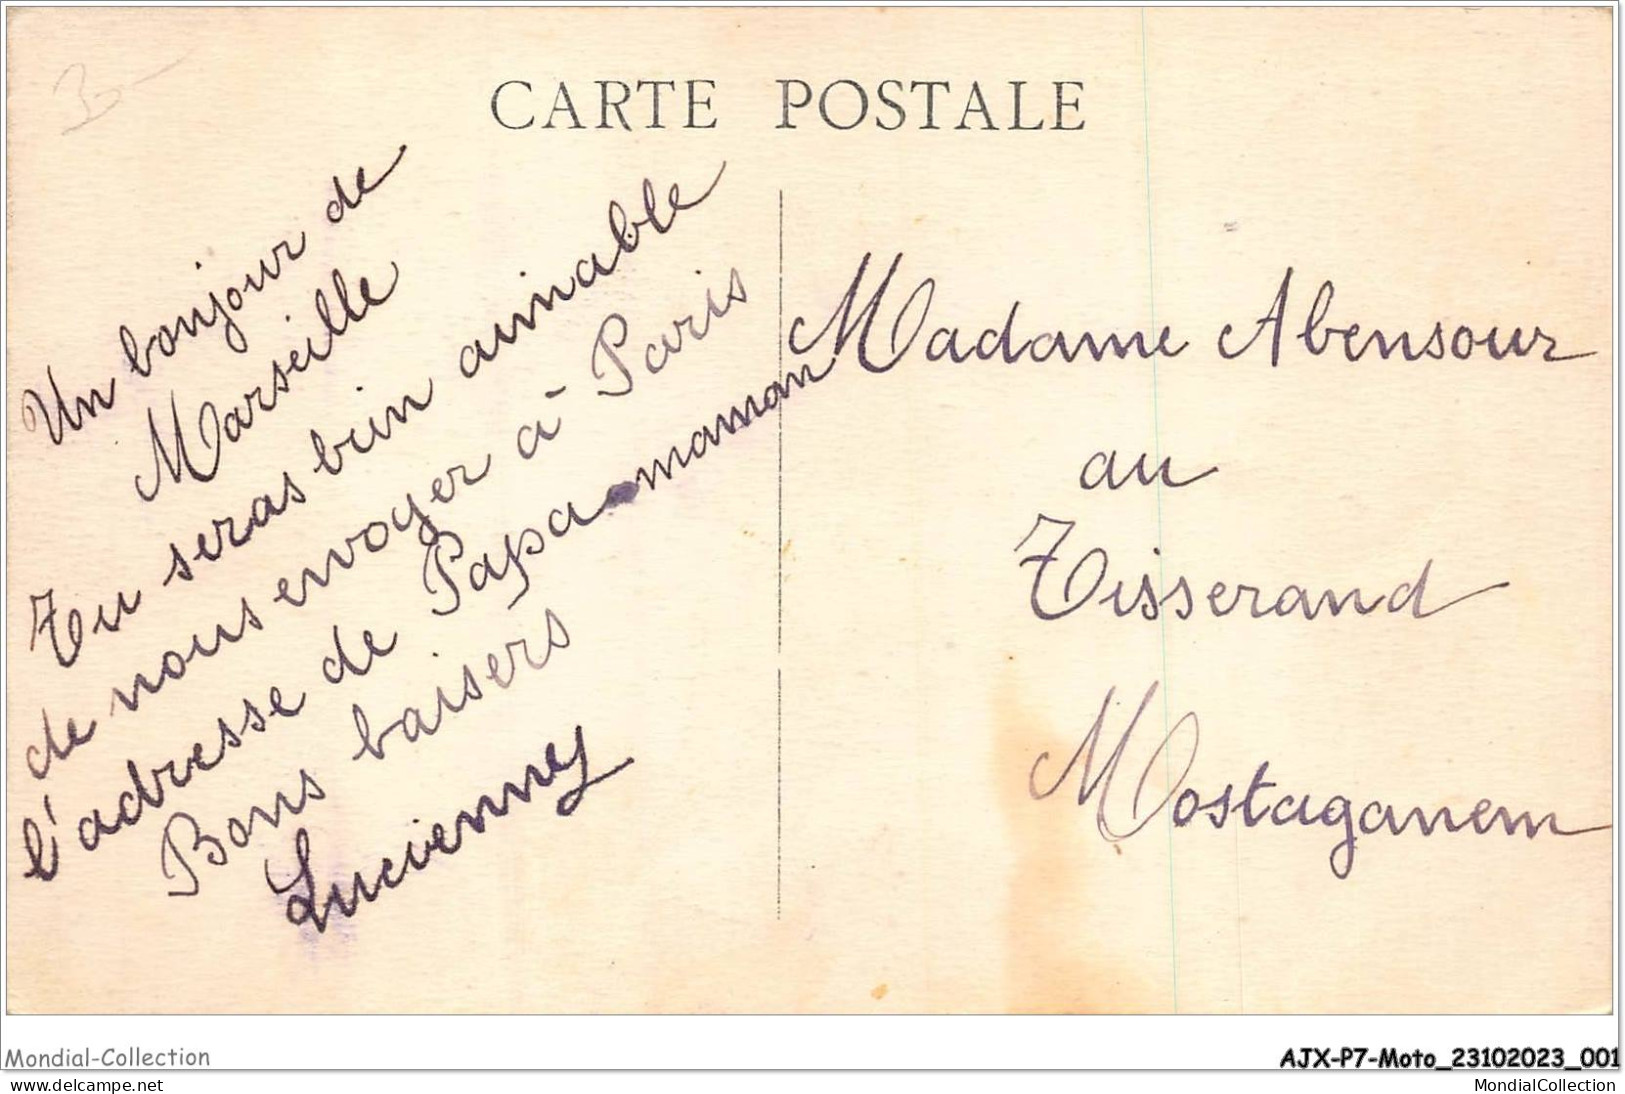 3-
CARTE POSTALE
Un bonjour de
Marseille
Tu seras bien aimable
de nous envoyer à Paris
l'adresse de Papa-maman
Bons baisers
Lucienney
Madame Abensour
au
Tisserand
Mostaganem
Mondial-Collection
AJX-P7-Moto_23102023_001
www.delcampe.net
MondialCollection